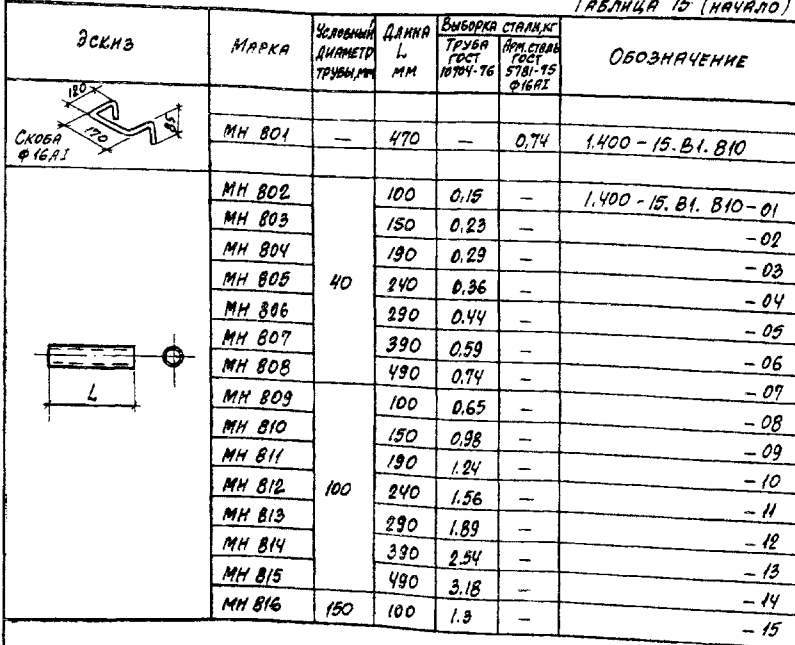 ТАБЛИЦА 15 (НАЧАЛО)
ЭСКИЗ МАРКА УСЛОВНЫЙ ДИАМЕТР ТРУБЫ,ММ ДЛИНА L ММ ВЫБОРКА СТАЛИ,КГ ОБОЗНАЧЕНИЕ
ТРУБА ГОСТ 10704-76 АРМ.СТАЛЬ ГОСТ 5781-75 Ф16АI
120 170 85
СКОБА Ф16АI
МН 801 — 470 — 0,74 1.400-15.В1.810
МН 802 40 100 0,15 — 1.400-15.В1.810-01
МН 803 150 0,23 — -02
МН 804 190 0,29 — -03
МН 805 240 0,36 — -04
МН 806 290 0,44 — -05
МН 807 390 0,59 — -06
МН 808 490 0,74 — -07
L
МН 809 100 100 0,65 — -08
МН 810 150 0,98 — -09
МН 811 190 1.24 — -10
МН 812 240 1.56 — -11
МН 813 290 1.89 — -12
МН 814 390 2.54 — -13
МН 815 490 3.18 — -14
МН 816 150 100 1.3 — -15